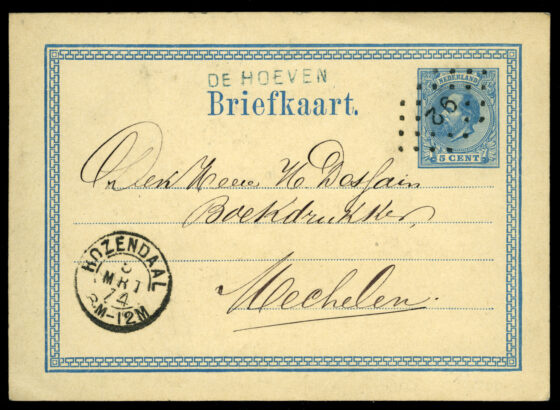 DE HOEVEN
Briefkaart.
NEDERLAND
92
5 CENT
Den Heer H Dessain
Boekdrukker
Mechelen.
ROZENDAAL
MRT
74
8M-12M